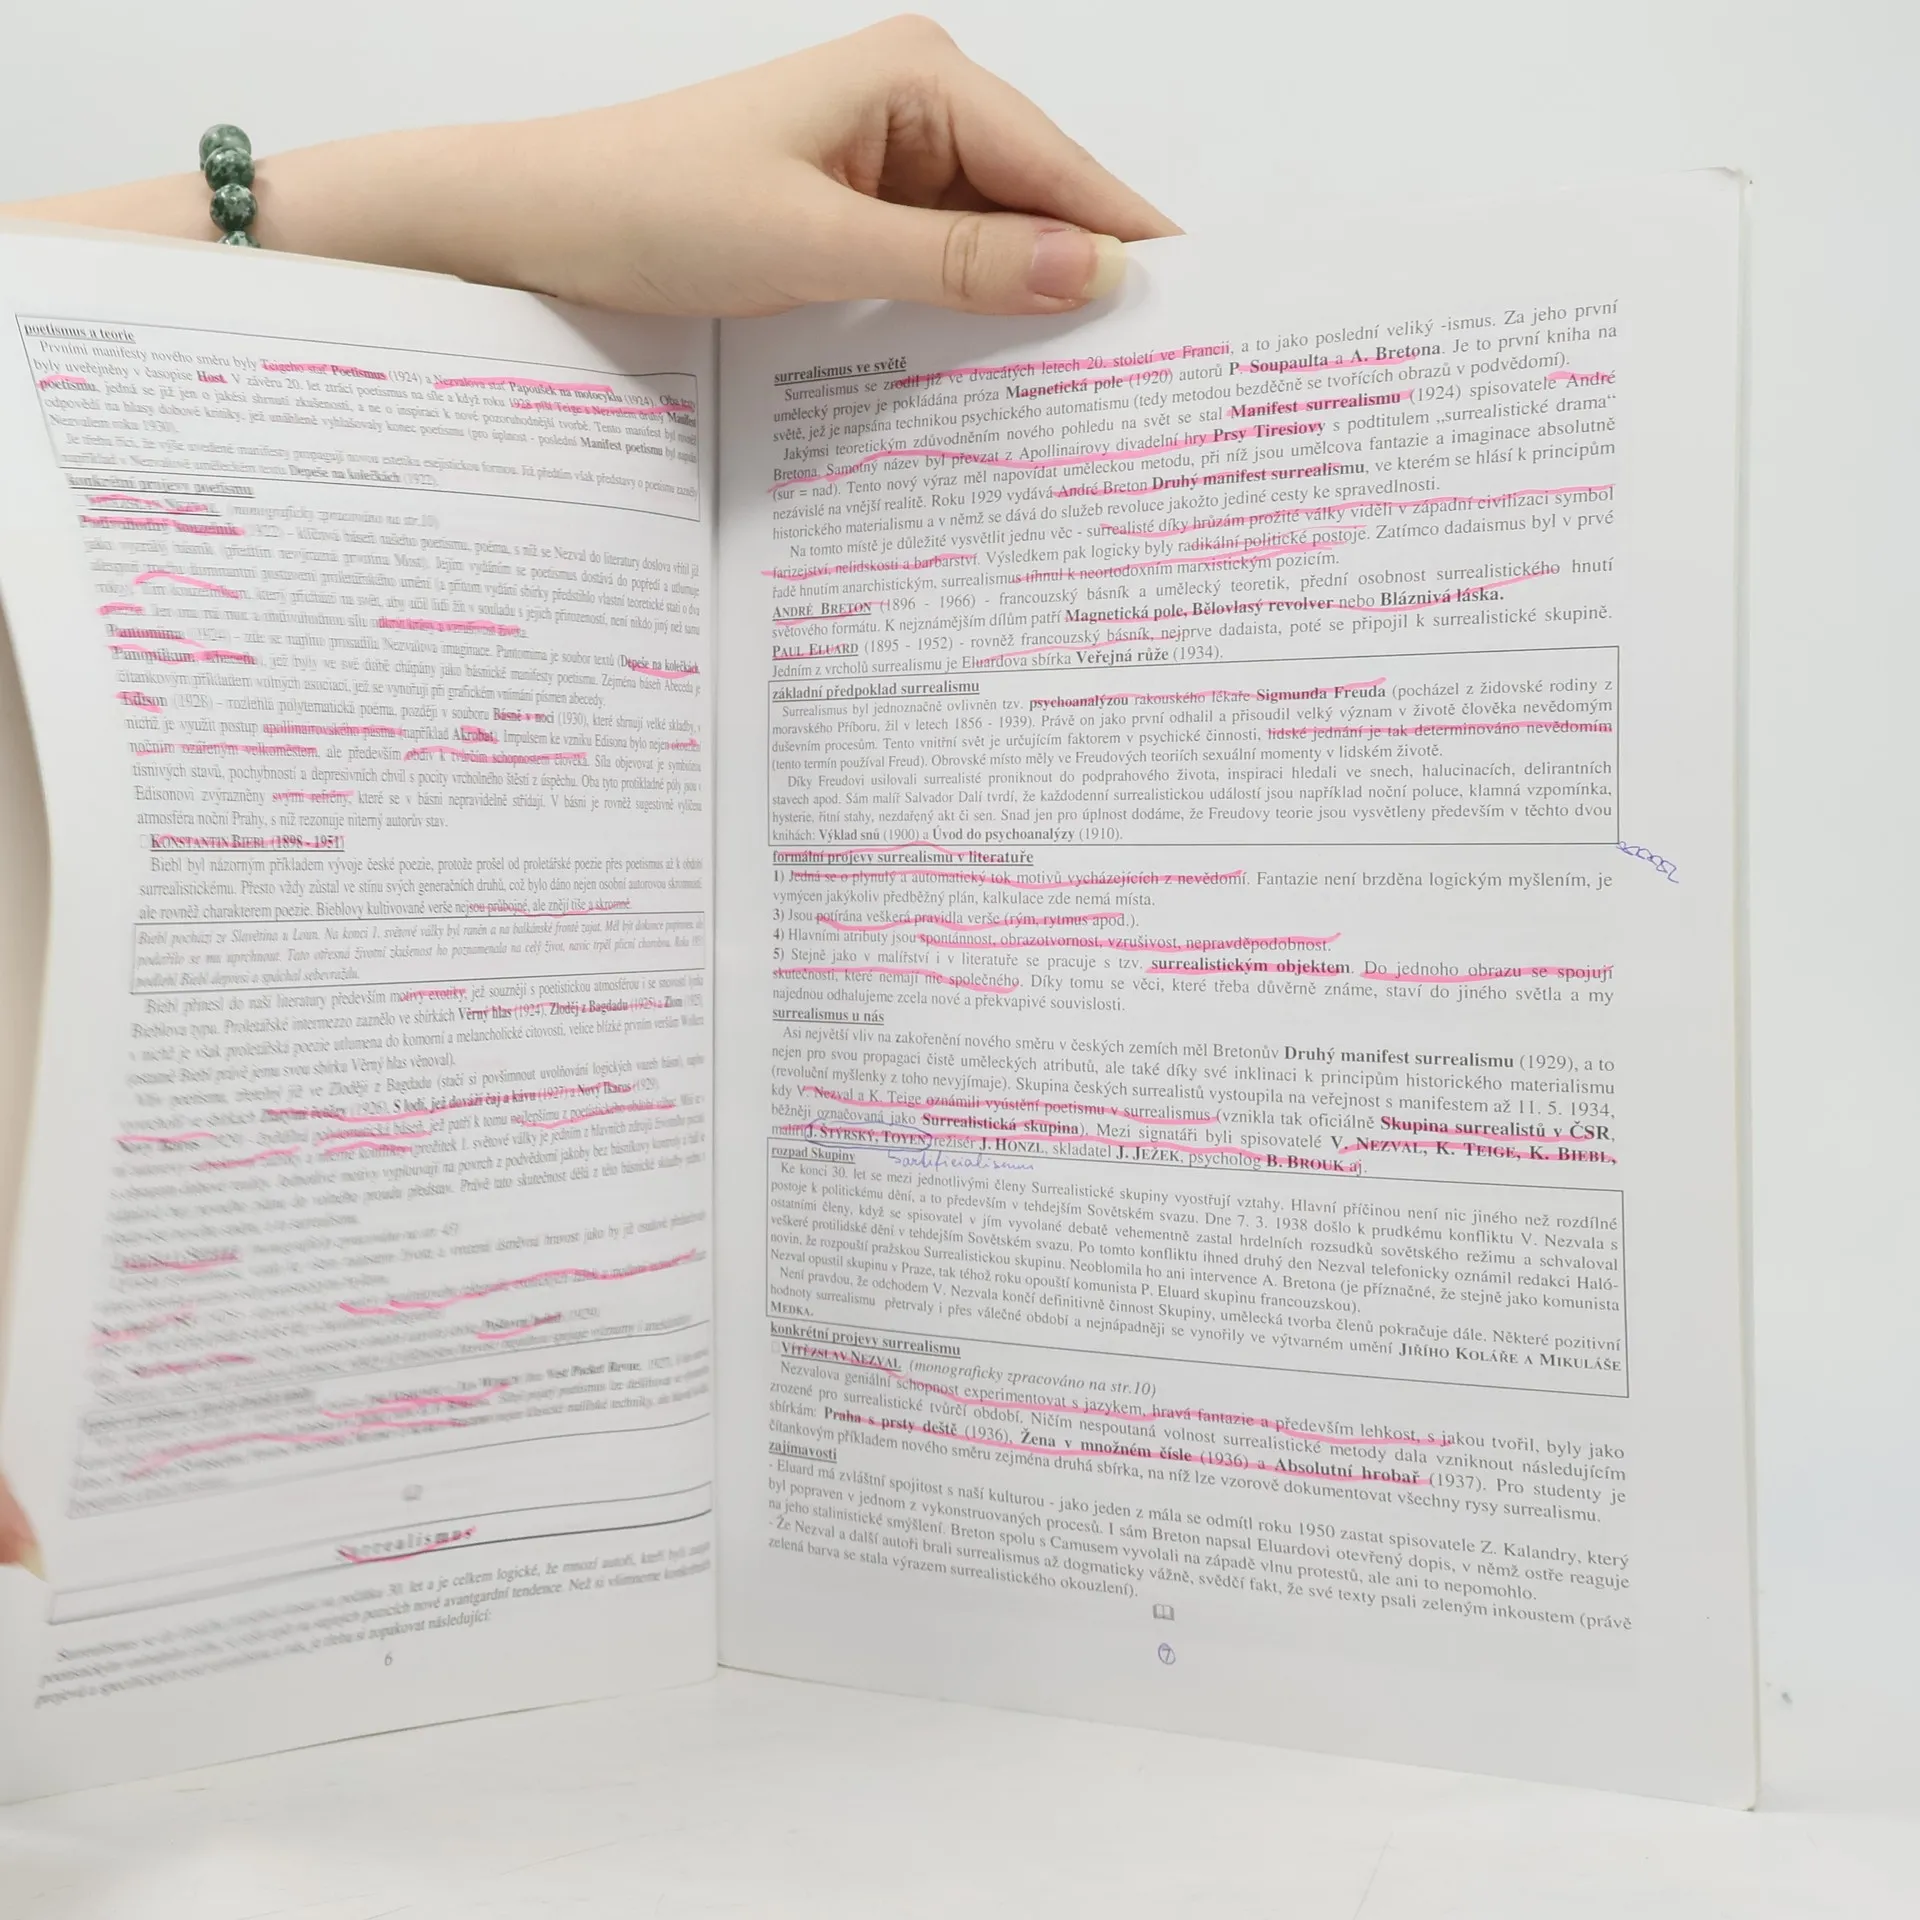 poetismus a teorie
Prvními manifesty nového směru byly Teigeho stať Poetismus (1924) a Nezvalova stať Papoušek na motocyklu (1924). Oba
byly uveřejněny v časopise Host. V závěru 20. let ztrácí poetismus na síle a když roku 1928 píší Teige s Nezvalem druhý Manifest
poetismu, jedná se již jen o jakési shrnutí zkušeností, a ne o inspiraci k nové pozoruhodnější tvorbě. Tento manifest byl
odpovědí na hlasy dobové kritiky, jež unáhleně vyhlašovaly konec poetismu (pro úplnost - poslední Manifest poetismu byl
Nezvalem roku 1930).
Je třeba říci, že výše uvedené manifesty propagují novou estetiku esejistickou formou. Již předtím však představy o poetismu zazněly
například v Nezvalově uměleckém textu Depeše na kolečkách (1922).
konkrétní projevy poetismu
(monograficky zpracováno na str.10)
Podivuhodný kouzelník (1922) - klíčová báseň našeho poetismu, poéma, s níž se Nezval do literatury doslova vřítil již
jako vyzrálý básník (předtím nevýrazná prvotina Most). Jejím vydáním se poetismus dostává do popředí a utlumuje
dominantní postavení proletářského umění (a přitom vydání sbírky předstihlo vlastní teoretické stati o dva
roky). který přichází na svět, aby učil lidi žít v souladu s jejich přirozeností, není nikdo jiný než sama
Pantomima (1924) - zde se naplno prosadila Nezvalova imaginace. Pantomima je soubor textů (Depeše na kolečkách,
Panoptikum, Abeceda), jež byly ve své době chápány jako básnické manifesty poetismu. Zejména báseň Abeceda je
čítankovým příkladem volných asociací, jež se vynořují při grafickém vnímání písmen abecedy.
Edison (1928) - rozlehlá polytematická poéma, později v souboru Básně v noci (1930), které shrnují velké skladby, v
nichž je využit postup apollinairovského pásma (například Akrobat). Impulsem ke vzniku Edisona bylo nejen okouzlení
nočním ozářeným velkoměstem, ale především obdiv k tvůrčím schopnostem člověka. Síla objevovat je symbióza
tísnivých stavů, pochybností a depresivních chvil s pocity vrcholného štěstí z úspěchu. Oba tyto protikladné póly jsou v
Edisonovi zvýrazněny svými refrény, které se v básni nepravidelně střídají. V básni je rovněž sugestivně vylíčena
atmosféra noční Prahy, s níž rezonuje niterný autorův stav.
KONSTANTIN BIEBL (1898 - 1951)
Biebl byl názorným příkladem vývoje české poezie, protože prošel od proletářské poezie přes poetismus až k období
surrealistickému. Přesto vždy zůstal ve stínu svých generačních druhů, což bylo dáno nejen osobní autorovou skromností,
ale rovněž charakterem poezie. Bieblovy kultivované verše nejsou průbojné, ale znějí tiše a skromně.
Biebl pochází ze Slavětína u Loun. Na konci 1. světové války byl raněn a na balkánské frontě zajat. Měl být dokonce popraven, ale
podařilo se mu uprchnout. Tato otřesná životní zkušenost ho poznamenala na celý život, navíc trpěl plicní chorobou. Roku 1951
podlehl Biebl depresi a spáchal sebevraždu.
Biebl přinesl do naší literatury především motivy exotiky, jež souznějí s poetistickou atmosférou i se snovostí lyrika
Bieblova typu. Proletářské intermezzo zaznělo ve sbírkách Věrný hlas (1924), Zloděj z Bagdadu (1925) a Zlom (1925),
v nichž je však proletářská poezie utlumena do komorní a melancholické citovosti, velice blízké prvním veršům Wolkera
(ostatně Biebl právě jemu svou sbírku Věrný hlas věnoval).
Vliv poetismu, zřetelný již ve Zloději z Bagdadu (stačí si povšimnout uvolňování logických vazeb básní),
ve sbírkách Zlatými řetězy (1926), S lodí, jež dováží čaj a kávu (1927) a Nový Ikaros (1929).
polytematická báseň, jež patří k tomu nejlepšímu z poetistického období
(prožitek 1. světové války je jedním z hlavních zdrojů
Jednotlivé motivy vyplouvají na povrch z podvědomí jakoby bez básníkovy kontroly a
do volného proudu představ. Právě tato skutečnost dělá z této básnické skladby
Surrealismus
počátku 30. let a je celkem logické, že mnozí autoři, kteří byli
nové avantgardní tendence. Než si všimneme konkrétních
je třeba si zopakovat následující:
6
surrealismus ve světě
Surrealismus se zrodil již ve dvacátých letech 20. století ve Francii, a to jako poslední veliký -ismus. Za jeho první
umělecký projev je pokládána próza Magnetická pole (1920) autorů P. Soupaulta a A. Bretona. Je to první kniha na
světě, jež je napsána technikou psychického automatismu (tedy metodou bezděčně se tvořících obrazů v podvědomí).
Jakýmsi teoretickým zdůvodněním nového pohledu na svět se stal Manifest surrealismu (1924) spisovatele André
Bretona. Samotný název byl převzat z Apollinairovy divadelní hry Prsy Tiresiovy s podtitulem „surrealistické drama“
(sur = nad). Tento nový výraz měl napovídat uměleckou metodu, při níž jsou umělcova fantazie a imaginace absolutně
nezávislé na vnější realitě. Roku 1929 vydává André Breton Druhý manifest surrealismu, ve kterém se hlásí k principům
historického materialismu a v němž se dává do služeb revoluce jakožto jediné cesty ke spravedlnosti.
Na tomto místě je důležité vysvětlit jednu věc - surrealisté díky hrůzám prožité války viděli v západní civilizaci symbol
farizejství, nelidskosti a barbarství. Výsledkem pak logicky byly radikální politické postoje. Zatímco dadaismus byl v prvé
řadě hnutím anarchistickým, surrealismus tíhnul k neortodoxním marxistickým pozicím.
ANDRÉ BRETON (1896 - 1966) - francouzský básník a umělecký teoretik, přední osobnost surrealistického hnutí
světového formátu. K nejznámějším dílům patří Magnetická pole, Bělovlasý revolver nebo Bláznivá láska.
PAUL ELUARD (1895 - 1952) - rovněž francouzský básník, nejprve dadaista, poté se připojil k surrealistické skupině.
Jedním z vrcholů surrealismu je Eluardova sbírka Veřejná růže (1934).
základní předpoklad surrealismu
Surrealismus byl jednoznačně ovlivněn tzv. psychoanalýzou rakouského lékaře Sigmunda Freuda (pocházel z židovské rodiny z
moravského Příboru, žil v letech 1856 - 1939). Právě on jako první odhalil a přisoudil velký význam v životě člověka nevědomým
duševním procesům. Tento vnitřní svět je určujícím faktorem v psychické činnosti, lidské jednání je tak determinováno nevědomím
(tento termín používal Freud). Obrovské místo měly ve Freudových teoriích sexuální momenty v lidském životě.
Díky Freudovi usilovali surrealisté proniknout do podprahového života, inspiraci hledali ve snech, halucinacích, delirantních
stavech apod. Sám malíř Salvador Dalí tvrdí, že každodenní surrealistickou událostí jsou například noční poluce, klamná vzpomínka,
hysterie, řitní stahy, nezdařený akt či sen. Snad jen pro úplnost dodáme, že Freudovy teorie jsou vysvětleny především v těchto dvou
knihách: Výklad snů (1900) a Úvod do psychoanalýzy (1910).
formální projevy surrealismu v literatuře
1) Jedná se o plynulý a automatický tok motivů vycházejících z nevědomí. Fantazie není brzděna logickým myšlením, je
vymýcen jakýkoliv předběžný plán, kalkulace zde nemá místa.
3) Jsou potírána veškerá pravidla verše (rým, rytmus apod.).
4) Hlavními atributy jsou spontánnost, obrazotvornost, vzrušivost, nepravděpodobnost.
5) Stejně jako v malířství i v literatuře se pracuje s tzv. surrealistickým objektem. Do jednoho obrazu se spojují
skutečnosti, které nemají nic společného. Díky tomu se věci, které třeba důvěrně známe, staví do jiného světla a my
najednou odhalujeme zcela nové a překvapivé souvislosti.
surrealismus u nás
Asi největší vliv na zakořenění nového směru v českých zemích měl Bretonův Druhý manifest surrealismu (1929), a to
nejen pro svou propagaci čistě uměleckých atributů, ale také díky své inklinaci k principům historického materialismu
(revoluční myšlenky z toho nevyjímaje). Skupina českých surrealistů vystoupila na veřejnost s manifestem až 11. 5. 1934,
kdy V. Nezval a K. Teige oznámili vyústění poetismu v surrealismus (vznikla tak oficiálně Skupina surrealistů v ČSR,
běžněji označovaná jako Surrealistická skupina). Mezi signatáři byli spisovatelé V. NEZVAL, K. TEIGE, K. BIEBL,
malíři J. ŠTYRSKÝ, TOYEN, režisér J. HONZL, skladatel J. JEŽEK, psycholog B. BROUK aj.
artificialismus
rozpad Skupiny
Ke konci 30. let se mezi jednotlivými členy Surrealistické skupiny vyostřují vztahy. Hlavní příčinou není nic jiného než rozdílné
postoje k politickému dění, a to především v tehdejším Sovětském svazu. Dne 7. 3. 1938 došlo k prudkému konfliktu V. Nezvala s
ostatními členy, když se spisovatel v jím vyvolané debatě vehementně zastal hrdelních rozsudků sovětského režimu a schvaloval
veškeré protilidské dění v tehdejším Sovětském svazu. Po tomto konfliktu ihned druhý den Nezval telefonicky oznámil redakci Haló-
novin, že rozpouští pražskou Surrealistickou skupinu. Neoblomila ho ani intervence A. Bretona (je příznačné, že stejně jako komunista
Nezval opustil skupinu v Praze, tak téhož roku opouští komunista P. Eluard skupinu francouzskou).
Není pravdou, že odchodem V. Nezvala končí definitivně činnost Skupiny, umělecká tvorba členů pokračuje dále. Některé pozitivní
hodnoty surrealismu přetrvaly i přes válečné období a nejnápadněji se vynořily ve výtvarném umění JIŘÍHO KOLÁŘE A MIKULÁŠE
MEDKA.
konkrétní projevy surrealismu
VÍTĚZSLAV NEZVAL (monograficky zpracováno na str.10)
Nezvalova geniální schopnost experimentovat s jazykem, hravá fantazie a především lehkost, s jakou tvořil, byly jako
zrozené pro surrealistické tvůrčí období. Ničím nespoutaná volnost surrealistické metody dala vzniknout následujícím
sbírkám: Praha s prsty deště (1936), Žena v množném čísle (1936) a Absolutní hrobař (1937). Pro studenty je
čítankovým příkladem nového směru zejména druhá sbírka, na níž lze vzorově dokumentovat všechny rysy surrealismu.
zajímavosti
- Eluard má zvláštní spojitost s naší kulturou - jako jeden z mála se odmítl roku 1950 zastat spisovatele Z. Kalandry, který
byl popraven v jednom z vykonstruovaných procesů. I sám Breton napsal Eluardovi otevřený dopis, v němž ostře reaguje
na jeho stalinistické smýšlení. Breton spolu s Camusem vyvolali na západě vlnu protestů, ale ani to nepomohlo.
- Že Nezval a další autoři brali surrealismus až dogmaticky vážně, svědčí fakt, že své texty psali zeleným inkoustem (právě
zelená barva se stala výrazem surrealistického okouzlení).
7